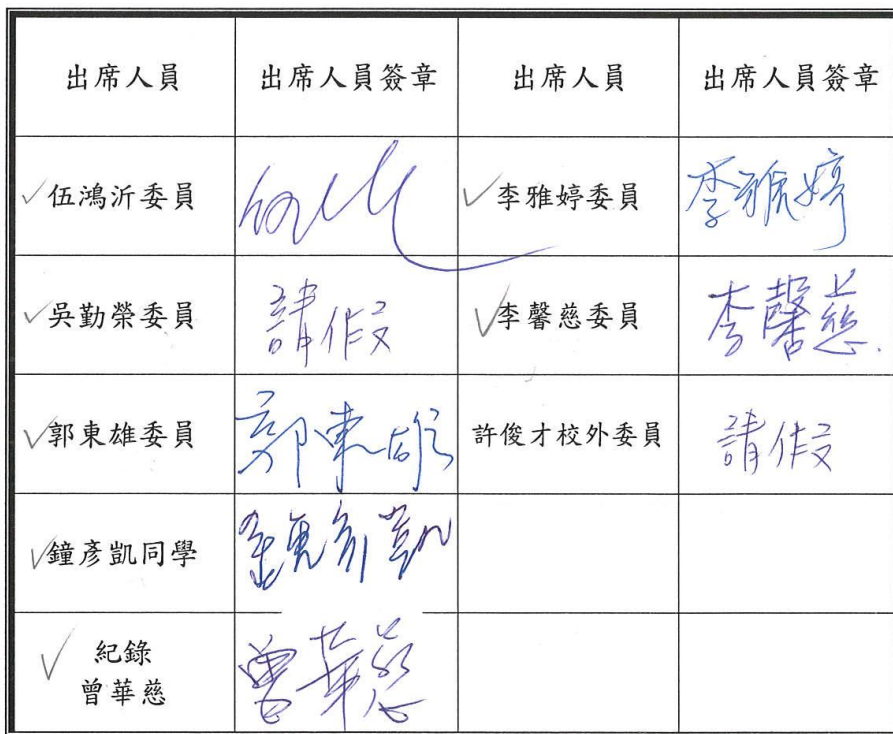 出席人員 出席人員簽章 出席人員 出席人員簽章
✓伍鴻沂委員 ✓李雅婷委員 李雅婷
✓吳勤榮委員 請假 ✓李馨慈委員 李馨慈
✓郭東雄委員 郭東雄 許俊才校外委員 請假
✓鐘彥凱同學 鐘彥凱
✓紀錄
曾華慈 曾華慈